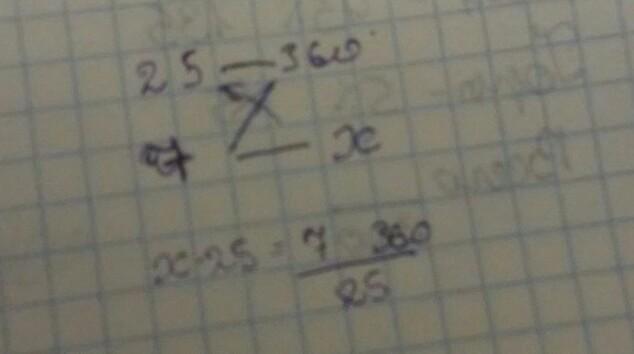 25 — 360
7 — x
x·25 = 7 360
25